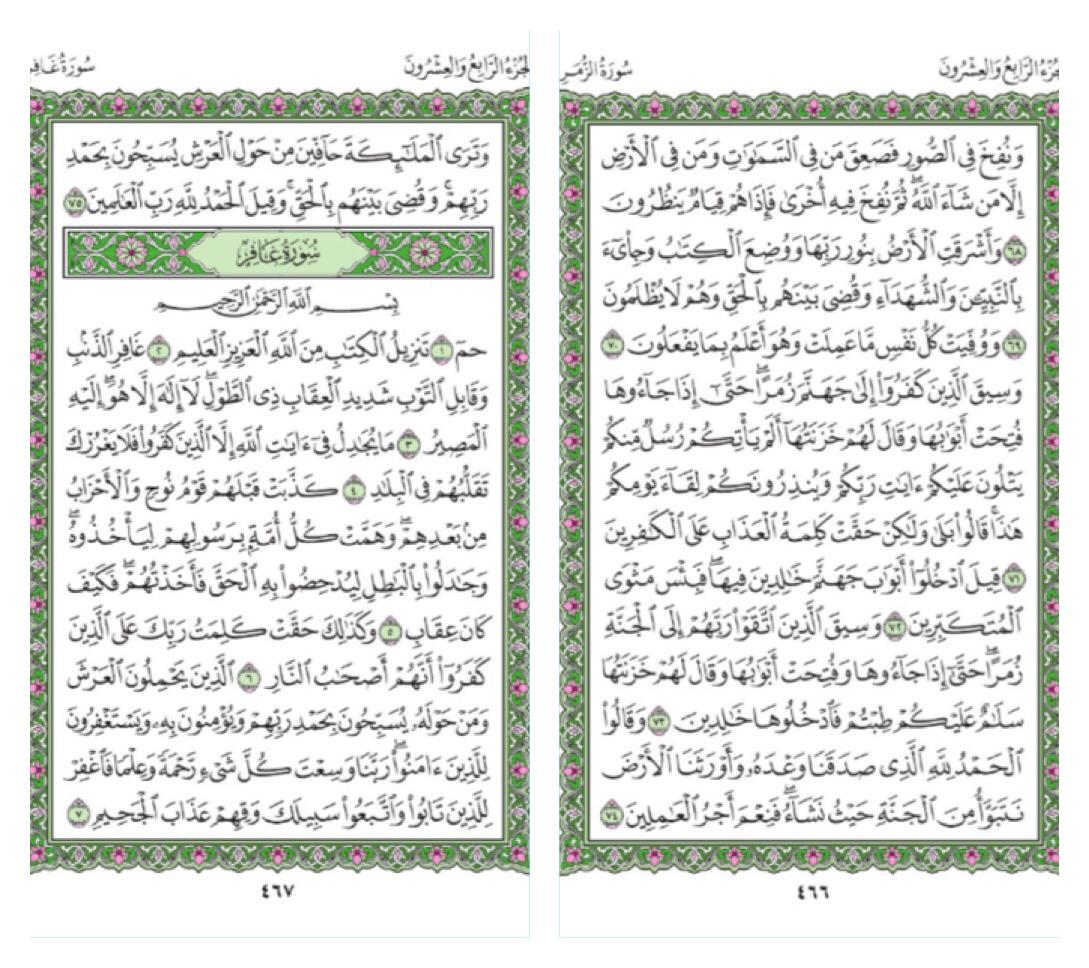 جُزْءُ الرَّابِعُ وَالعِشْرُونَ سُورَةُ الزُّمَر
وَنُفِخَ فِي ٱلصُّورِ فَصَعِقَ مَن فِي ٱلسَّمَٰوَٰتِ وَمَن فِي ٱلْأَرْضِ
إِلَّا مَن شَآءَ ٱللَّهُۖ ثُمَّ نُفِخَ فِيهِ أُخْرَىٰ فَإِذَا هُمْ قِيَامٌ يَنظُرُونَ
٦٨ وَأَشْرَقَتِ ٱلْأَرْضُ بِنُورِ رَبِّهَا وَوُضِعَ ٱلْكِتَٰبُ وَجِا۟يٓءَ
بِٱلنَّبِيِّـۧنَ وَٱلشُّهَدَآءِ وَقُضِيَ بَيْنَهُم بِٱلْحَقِّ وَهُمْ لَا يُظْلَمُونَ
٦٩ وَوُفِّيَتْ كُلُّ نَفْسٍ مَّا عَمِلَتْ وَهُوَ أَعْلَمُ بِمَا يَفْعَلُونَ ٧٠
وَسِيقَ ٱلَّذِينَ كَفَرُوٓا۟ إِلَىٰ جَهَنَّمَ زُمَرًاۖ حَتَّىٰٓ إِذَا جَآءُوهَا
فُتِحَتْ أَبْوَٰبُهَا وَقَالَ لَهُمْ خَزَنَتُهَآ أَلَمْ يَأْتِكُمْ رُسُلٌ مِّنكُمْ
يَتْلُونَ عَلَيْكُمْ ءَايَٰتِ رَبِّكُمْ وَيُنذِرُونَكُمْ لِقَآءَ يَوْمِكُمْ
هَٰذَاۚ قَالُوا۟ بَلَىٰ وَلَٰكِنْ حَقَّتْ كَلِمَةُ ٱلْعَذَابِ عَلَى ٱلْكَٰفِرِينَ
٧١ قِيلَ ٱدْخُلُوٓا۟ أَبْوَٰبَ جَهَنَّمَ خَٰلِدِينَ فِيهَاۖ فَبِئْسَ مَثْوَى
ٱلْمُتَكَبِّرِينَ ٧٢ وَسِيقَ ٱلَّذِينَ ٱتَّقَوْا۟ رَبَّهُمْ إِلَى ٱلْجَنَّةِ
زُمَرًاۖ حَتَّىٰٓ إِذَا جَآءُوهَا وَفُتِحَتْ أَبْوَٰبُهَا وَقَالَ لَهُمْ خَزَنَتُهَا
سَلَٰمٌ عَلَيْكُمْ طِبْتُمْ فَٱدْخُلُوهَا خَٰلِدِينَ ٧٣ وَقَالُوا۟
ٱلْحَمْدُ لِلَّهِ ٱلَّذِي صَدَقَنَا وَعْدَهُۥ وَأَوْرَثَنَا ٱلْأَرْضَ
نَتَبَوَّأُ مِنَ ٱلْجَنَّةِ حَيْثُ نَشَآءُۖ فَنِعْمَ أَجْرُ ٱلْعَٰمِلِينَ ٧٤
٤٦٦
لجُزْءُ الرَّابِعُ وَالعِشْرُونَ سُورَةُ غَافِر
وَتَرَى ٱلْمَلَٰٓئِكَةَ حَآفِّينَ مِنْ حَوْلِ ٱلْعَرْشِ يُسَبِّحُونَ بِحَمْدِ
رَبِّهِمْۖ وَقُضِيَ بَيْنَهُم بِٱلْحَقِّۚ وَقِيلَ ٱلْحَمْدُ لِلَّهِ رَبِّ ٱلْعَٰلَمِينَ ٧٥
سُورَةُ غَافِرٍ
بِسْمِ ٱللَّهِ ٱلرَّحْمَٰنِ ٱلرَّحِيمِ
حمٓ ١ تَنزِيلُ ٱلْكِتَٰبِ مِنَ ٱللَّهِ ٱلْعَزِيزِ ٱلْعَلِيمِ ٢ غَافِرِ ٱلذَّنۢبِ
وَقَابِلِ ٱلتَّوْبِ شَدِيدِ ٱلْعِقَابِ ذِي ٱلطَّوْلِۖ لَآ إِلَٰهَ إِلَّا هُوَۖ إِلَيْهِ
ٱلْمَصِيرُ ٣ مَا يُجَٰدِلُ فِيٓ ءَايَٰتِ ٱللَّهِ إِلَّا ٱلَّذِينَ كَفَرُوا۟ فَلَا يَغْرُرْكَ
تَقَلُّبُهُمْ فِي ٱلْبِلَٰدِ ٤ كَذَّبَتْ قَبْلَهُمْ قَوْمُ نُوحٍ وَٱلْأَحْزَابُ
مِنۢ بَعْدِهِمْۖ وَهَمَّتْ كُلُّ أُمَّةٍۭ بِرَسُولِهِمْ لِيَأْخُذُوهُۖ
وَجَٰدَلُوا۟ بِٱلْبَٰطِلِ لِيُدْحِضُوا۟ بِهِ ٱلْحَقَّ فَأَخَذْتُهُمْۖ فَكَيْفَ
كَانَ عِقَابِ ٥ وَكَذَٰلِكَ حَقَّتْ كَلِمَتُ رَبِّكَ عَلَى ٱلَّذِينَ
كَفَرُوٓا۟ أَنَّهُمْ أَصْحَٰبُ ٱلنَّارِ ٦ ٱلَّذِينَ يَحْمِلُونَ ٱلْعَرْشَ
وَمَنْ حَوْلَهُۥ يُسَبِّحُونَ بِحَمْدِ رَبِّهِمْ وَيُؤْمِنُونَ بِهِۦ وَيَسْتَغْفِرُونَ
لِلَّذِينَ ءَامَنُوا۟ۖ رَبَّنَا وَسِعْتَ كُلَّ شَيْءٍ رَّحْمَةً وَعِلْمًا فَٱغْفِرْ
لِلَّذِينَ تَابُوا۟ وَٱتَّبَعُوا۟ سَبِيلَكَ وَقِهِمْ عَذَابَ ٱلْجَحِيمِ ٧
٤٦٧